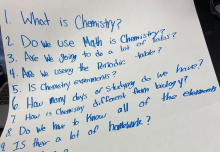 1. What is Chemistry?
2. Do we use Math is Chemistry?
3. Are we going to do a lot of labs?
4. Are we useing the Periodic table?
5. Is Chemistry
6. How many days of studying do we have?
7. How is Chemistry different from biology?
8. Do we have to know all of the elements
9. Is ther a lot of homework?